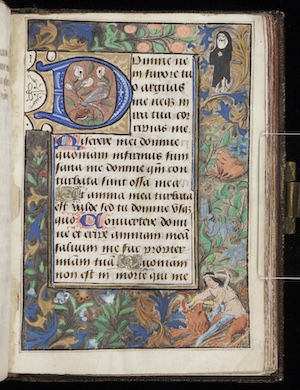 Domine ne
in furore tu
o arguas
me neq3 in
ira tua cor
ripias me.
Miserere mei domine
quoniam infirmus sum
sana me domine qm̄ con
turbata sunt ossa mea
Et anima mea turbata
est valde sed tu domine usq3
quo Convertere domi
ne et eripe animam meā
salvum me fac propter
miam tuā Quoniam
non est in morte qui me